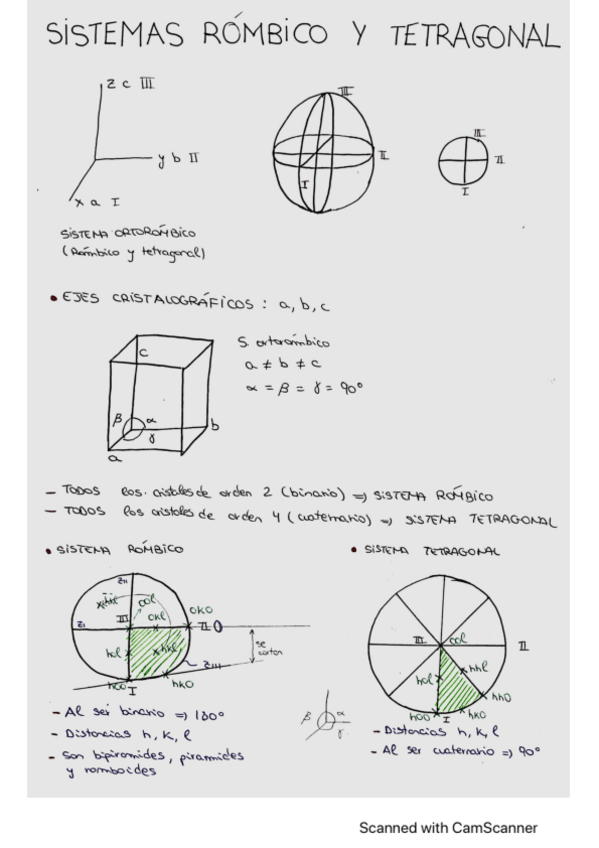 SISTEMAS RÓMBICO Y TETRAGONAL
z c III
y b II
x a I
III
II
I
III
II
I
SISTEMA ORTORÓMBICO
(Rómbico y tetragonal)
• EJES CRISTALOGRÁFICOS : a, b, c
S. ortorómbico
a ≠ b ≠ c
α = β = γ = 90°
c
β α
γ
b
a
- TODOS los cristales de orden 2 (binario) => SISTEMA RÓMBICO
- TODOS los cristales de orden 4 (cuaternario) => SISTEMA TETRAGONAL
• SISTEMA RÓMBICO
• SISTEMA TETRAGONAL
ZII
ool
III
okl
oko
II
ZI
hol
hkl
ZIII
se
cortan
hoo
I
hko
III
ool
II
hol
hhl
hho
hko
hoo
I
β α
γ
- Al ser binario => 180°
- Distancias h, k, l
- Son bipiramides, piramides
y romboides
- Distancias h, k, l
- Al ser cuaternario => 90°
Scanned with CamScanner